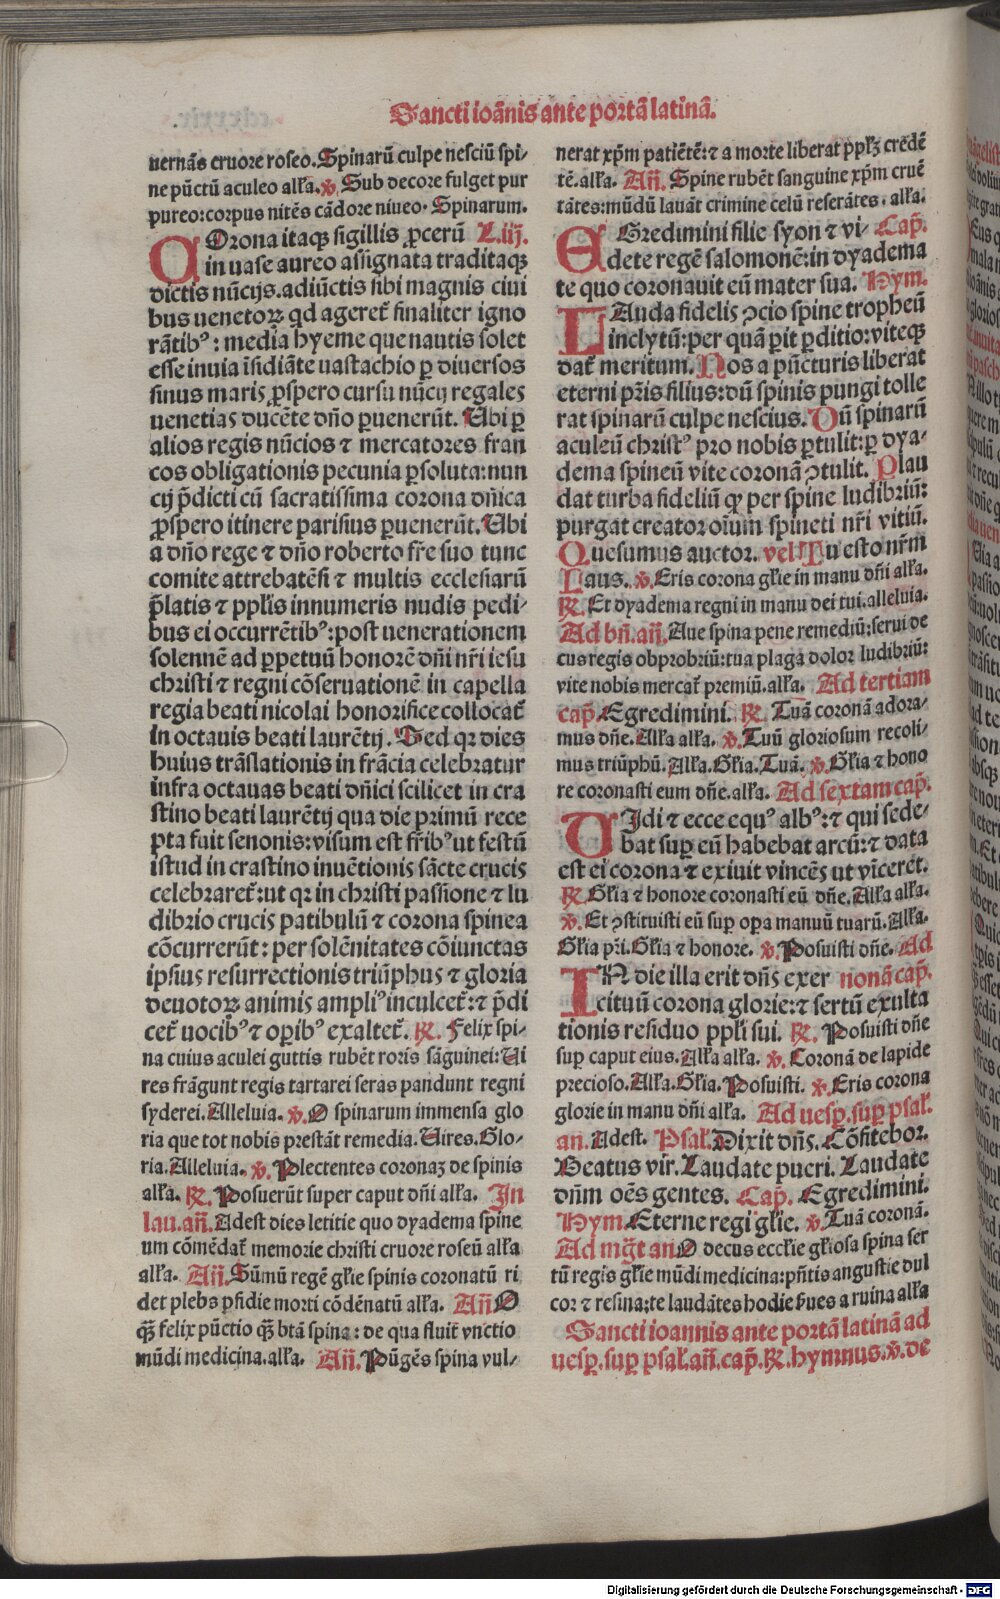 Sancti ioãnis ante portã latinã.
uernãs cruore roseo. Spinarũ culpe nesciũ spi-
ne pũctũ aculeo alľa. ℣. Sub decore fulget pur
pureo: corpus nitẽs cãdore niueo. Spinarum.
COrona itaqꝫ sigillis ꝓcerũ L.iij.
in uase aureo assignata traditaqꝫ
dictis nũcijs. adiũctis sibi magnis ciui
bus uenetoꝝ qd ageret̃ finaliter igno
rãtibꝰ: media hyeme que nautis solet
esse inuia ĩsidiãte uastachio ꝑ diuersos
sinus maris ꝓspero cursu nũcij regales
uenetias ducẽte dño ꝑuenerũt. Ubi ꝑ
alios regis nũcios ⁊ mercatores fran
cos obligationis pecunia ꝑsoluta: nun
cij p̃dicti cũ sacratissima corona dñica
ꝓspero itinere parisius ꝑuenerũt. Ubi
a dño rege ⁊ dño roberto fr̃e suo tunc
comite attrebatẽsi ⁊ multis ecclesiarũ
p̃latis ⁊ ppľis innumeris nudis pedi-
bus ei occurrẽtibꝰ: post uenerationem
solennẽ ad ꝑpetuũ honorẽ dñi nr̃i iesu
christi ⁊ regni cõseruationẽ in capella
regia beati nicolai honorifice collocat̃
in octauis beati laurẽtij. Sed qꝛ dies
huius trãslationis in frãcia celebratur
infra octauas beati dñici scilicet in cra
stino beati laurẽtij qua die primũ rece
pta fuit senonis: visum est frĩbꝰ ut festũ
istud in crastino inuẽtionis sãcte crucis
celebraret̃: ut qꝛ in christi passione ⁊ lu
dibrio crucis patibulũ ⁊ corona spinea
cõcurrerũt: per solẽnitates cõiunctas
ipsius resurrectionis triũphus ⁊ gloria
deuotoꝝ animis ampliꝰ inculcet̃: ⁊ p̃di
cet̃ uocibꝰ ⁊ oꝑibꝰ exaltet̃. ℟. Felix spi-
na cuius aculei guttis rubẽt roris sãguinei: Ui
res frãgunt regis tartarei seras pandunt regni
syderei. Alleluia. ℣. O spinarum immensa glo
ria que tot nobis prestãt remedia. Uires. Glo-
ria. Alleluia. ℣. Plectentes coronaȝ de spinis
alľa. ℟. Posuerũt super caput dñi alľa. In
lau. añ. Adest dies letitie quo dyadema spine
um cõmẽdat̃ memorie christi cruore roseũ alľa
alľa. Añ. Sũmũ regẽ gľie spinis coronatũ ri
det plebs pfidie morti cõdẽnatũ alľa. Añ O
qꝫ̃ felix pũctio qꝫ̃ btã spina: de qua fluit vnctio
mũdi medicina. alľa. Añ. Pũgẽs spina vul-
nerat xp̃m patiẽtẽ: ⁊ a morte liberat ppľȝ credẽ
tẽ. alľa. Añ. Spine rubẽt sanguine xp̃m cruẽ
tãtes: mũdũ lauãt crimine celũ reserãtes. alľa.
EGredimini filie syon ⁊ vi- Cap̃.
dete regẽ salomonẽ: in dyadema
te quo coronauit eũ mater sua. Hym.
LAuda fidelis ↄcio spine tropheũ
inclytũ: per quã ꝑit ꝑditio: viteqꝫ
dat̃ meritum. Nos a pũcturis liberat
eterni pr̃is filius: dũ spinis pungi tolle
rat spinarũ culpe nescius. Dũ spinarũ
aculeũ christꝰ pro nobis ꝑtulit: ꝑ dya-
dema spineũ vite coronã ↄtulit. Plau
dat turba fideliũ qꝫ per spine ludibriũ:
purgat creator oĩum spineti nr̃i vitiũ.
Quesumus auctor. vel Tu esto nr̃m
Laus. ℣. Eris corona gľie in manu dñi alľa.
℟. Et dyadema regni in manu dei tui. alleluia.
Ad bñ. añ. Aue spina pene remediũ: serui de
cus regis obprobriũ: tua plaga dolor ludibriũ:
vite nobis mercat̃ premiũ. alľa. Ad tertiam
cap̃. Egredimini. ℟. Tuã coronã adora-
mus dñe. Alľa alľa. ℣. Tuũ gloriosum recoli-
mus triũphũ. Alľa. Gľia. Tuã. ℣. Gľia ⁊ hono
re coronasti eum dñe. alľa. Ad sextam cap̃.
VIdi ⁊ ecce equꝰ albꝰ: ⁊ qui sede-
bat suꝑ eũ habebat arcũ: ⁊ data
est ei corona ⁊ exiuit vincẽs ut vĩceret.
℟ Gľia ⁊ honore coronasti eũ dñe. Alľa alľa.
℣. Et ↄstituisti eũ suꝑ oꝑa manuũ tuarũ. Alľa.
Gľia pr̃i. Gľia ⁊ honore. ℣. Posuisti dñe. Ad
IN die illa erit dñs exer nonã cap̃.
cituũ corona glorie: ⁊ sertũ exulta
tionis residuo ppľi sui. ℟. Posuisti dñe
suꝑ caput eius. Alľa alľa. ℣. Coronã de lapide
precioso. Alľa. Gľia. Posuisti. ℣. Eris corona
glorie in manu dñi alľa. Ad uesꝑ. suꝑ psal.
an. Adest. Psal. Dixit dñs. Cõfitebor.
Beatus vir. Laudate pueri. Laudate
dñm oẽs gentes. Cap̃. Egredimini.
Hym. Eterne regi gľie. ℣. Tuã coronã.
Ad mg̃t an O decus eccľie gľiosa spina ser
tũ regis gľie mũdi medicina: pñtis angustie dul
cor ⁊ resina: te laudãtes hodie ẜues a ruina alľa
Sancti ioannis ante portã latinã ad
uesꝑ. suꝑ psal. añ. cap̃. ℟. hymnus. ℣. de
Digitalisierung gefördert durch die Deutsche Forschungsgemeinschaft - DFG